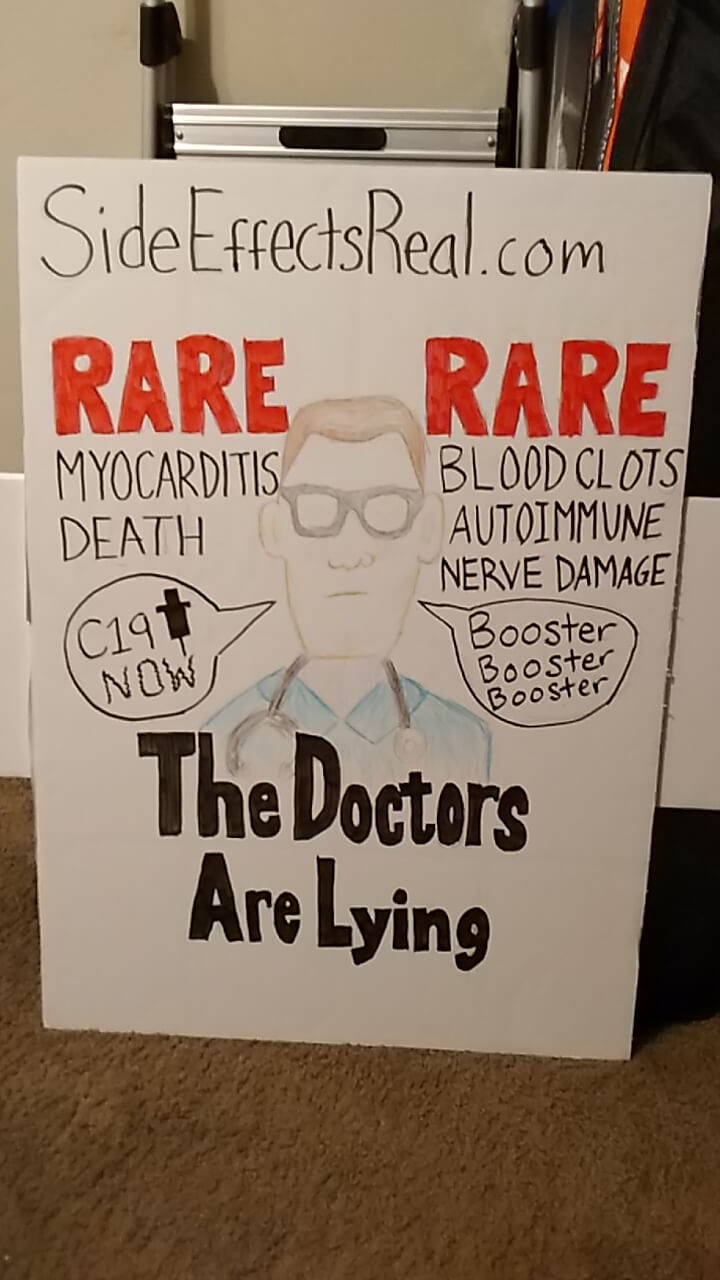 SideEffectsReal.com
RARE
MYOCARDITIS
DEATH
RARE
BLOOD CLOTS
AUTOIMMUNE
NERVE DAMAGE
C19
NOW
Booster
Booster
Booster
The Doctors
Are Lying